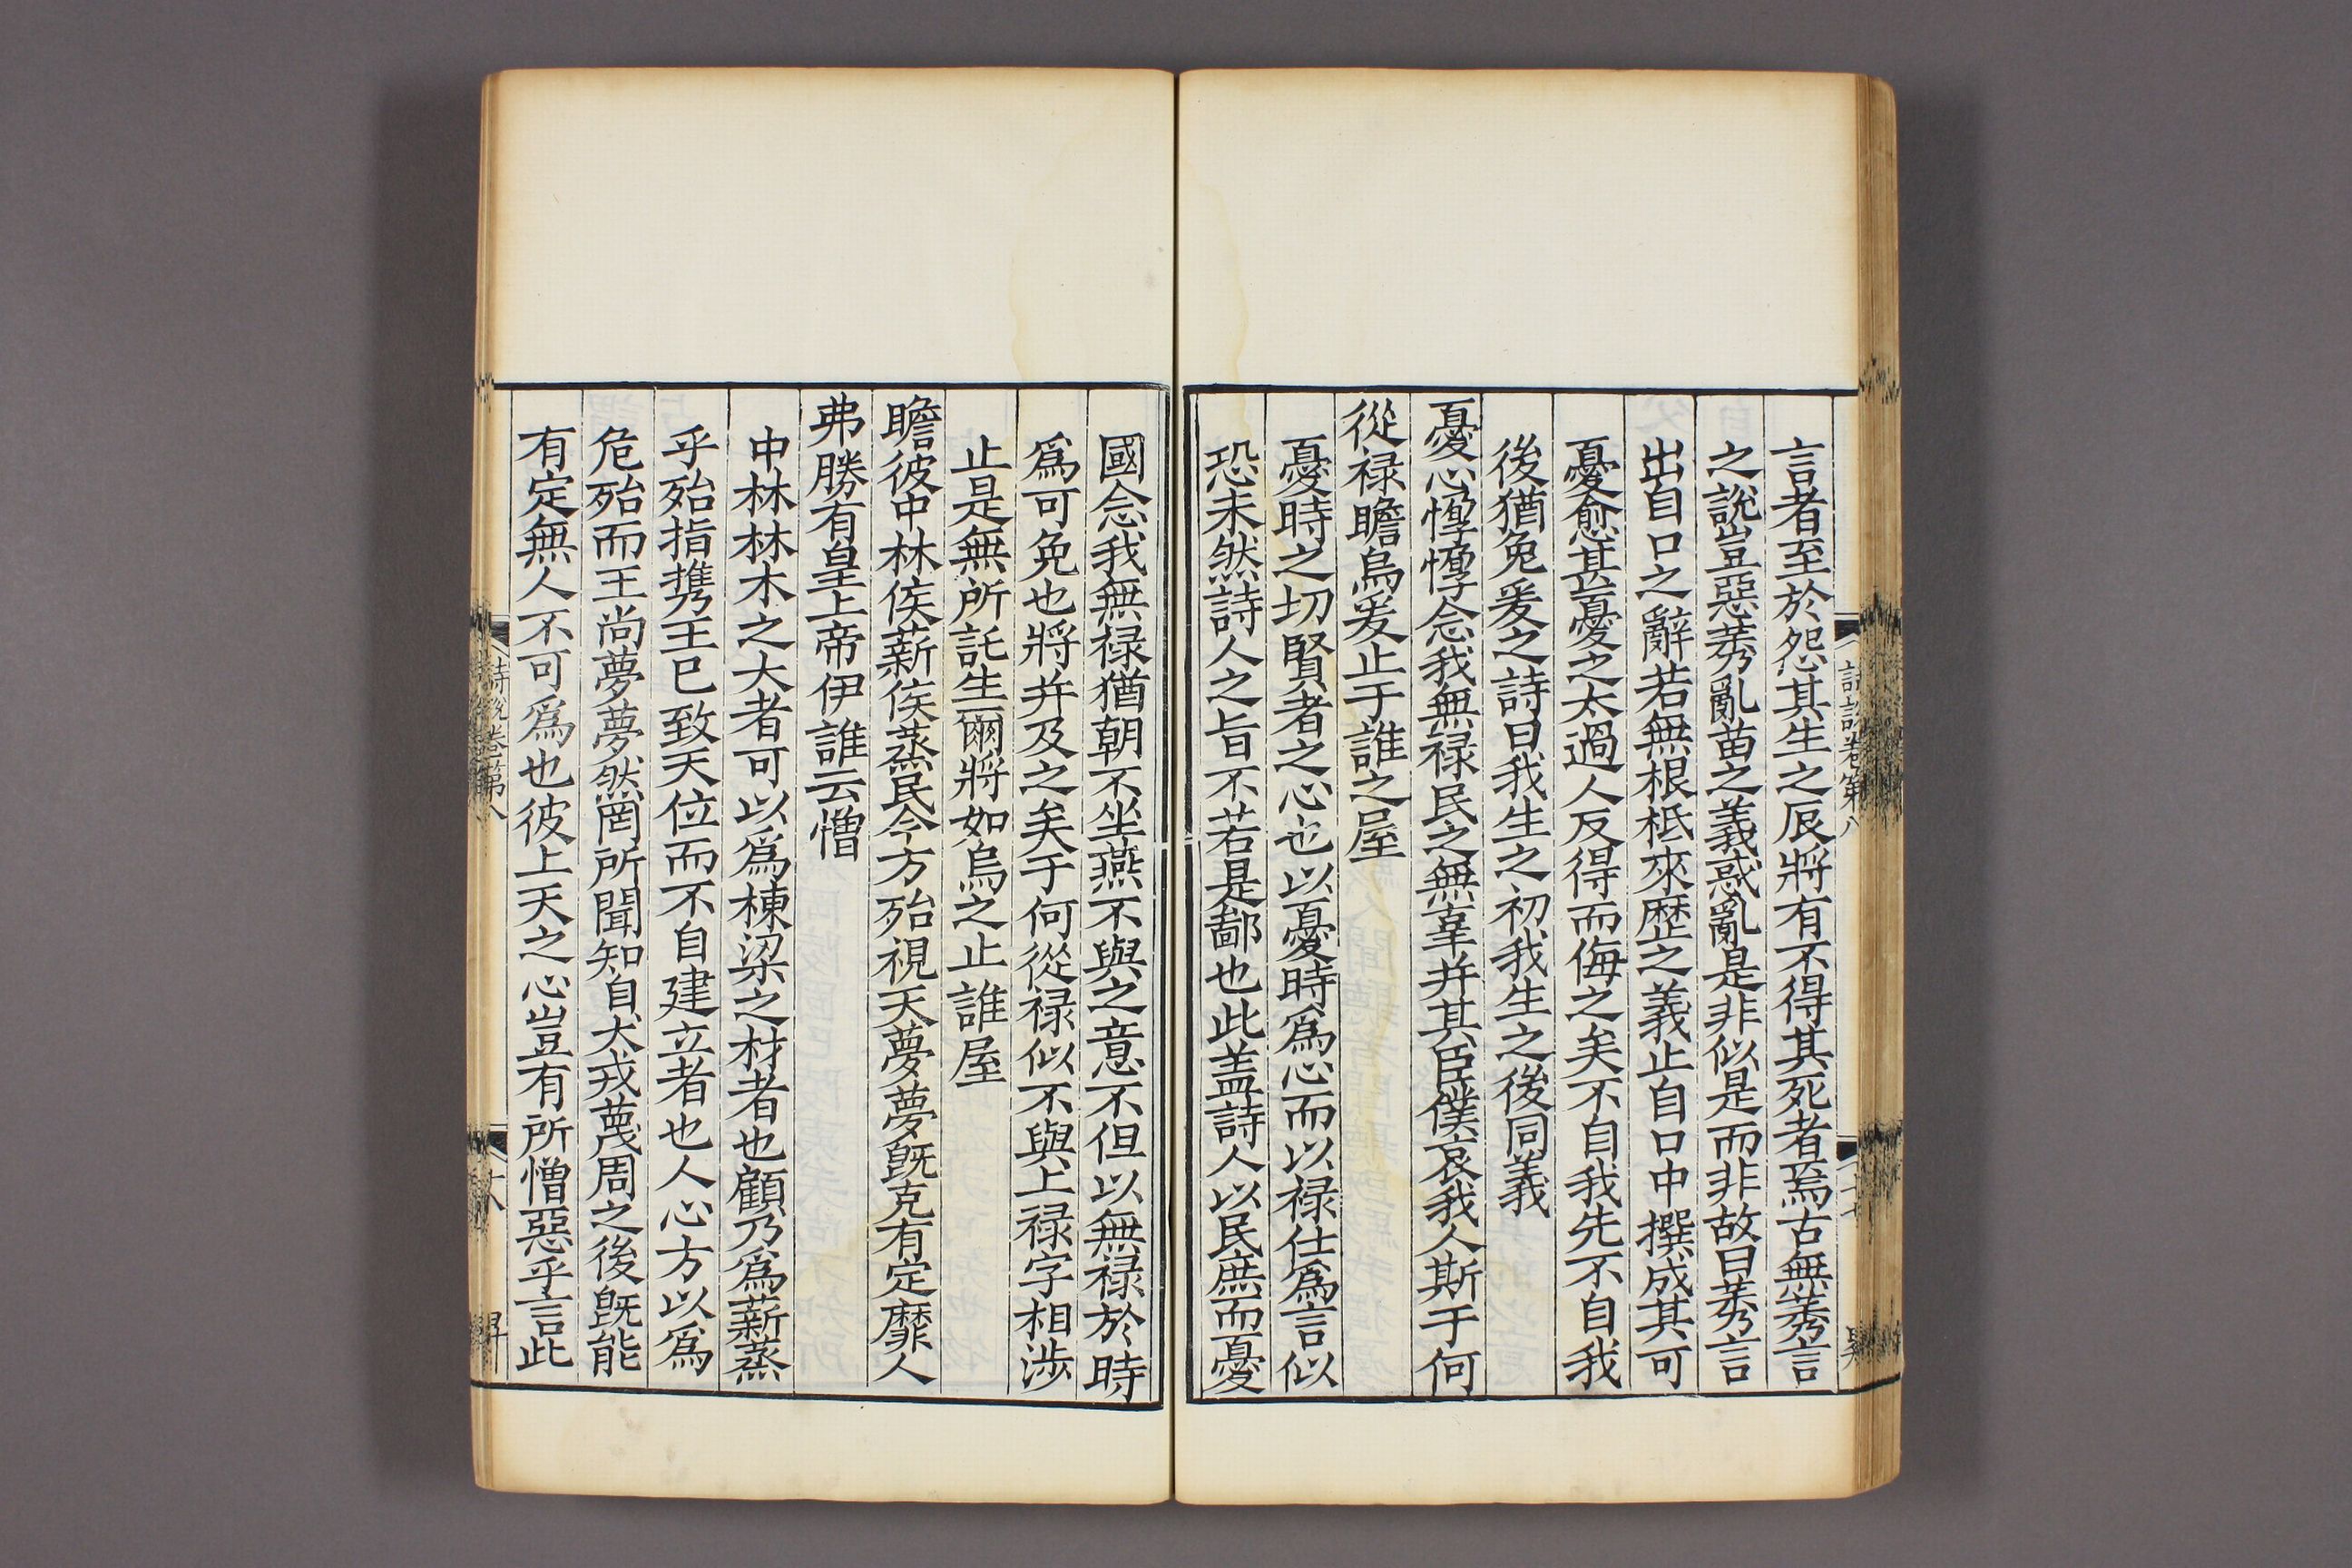 言者至於怨其生之辰將有不得其死者焉古無莠言
之說豈惡莠亂苗之義惑亂是非似是而非故曰莠言
出自口之辭若無根柢來歷之義止自口中撰成其可
憂愈甚憂之太過人反得而侮之矣不自我先不自我
後猶兔爰之詩曰我生之初我生之後同義
憂心惸惸念我無禄民之無辜并其臣僕哀我人斯于何
從禄瞻烏爰止于誰之屋
憂時之切賢者之心也以憂時爲心而以禄仕爲言似
恐未然詩人之旨不若是鄙也此盖詩人以民庶而憂
國念我無禄猶朝不坐燕不與之意不但以無禄於時
爲可免也將并及之矣于何從禄似不與上禄字相涉
止是無所託生爾將如烏之止誰屋
瞻彼中林侯薪侯蒸民今方殆視天夢夢旣克有定靡人
弗勝有皇上帝伊誰云憎
中林林木之大者可以爲棟梁之材者也顧乃爲薪蒸
乎殆指擕王已致天位而不自建立者也人心方以爲
危殆而王尚夢夢然罔所聞知自犬戎蔑周之後旣能
有定無人不可爲也彼上天之心豈有所憎惡乎言此
詩說卷第八
十七
詩說卷第八
十八
昇